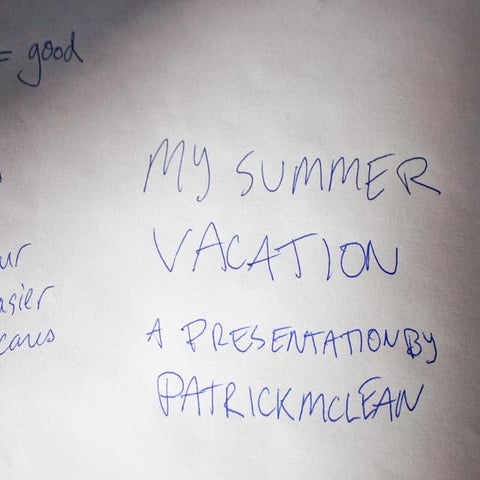 = good
MY SUMMER
VACATION
A PRESENTATION BY
PATRICK MCLEAN